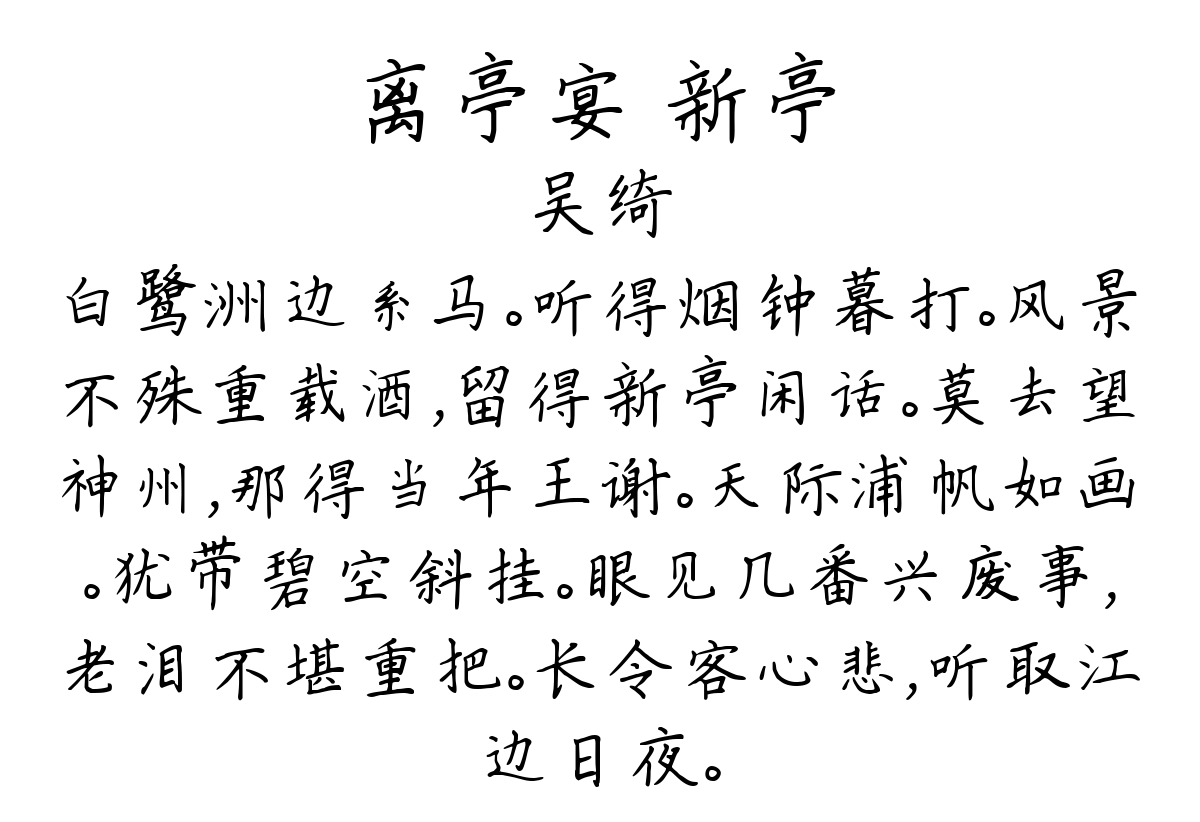 离亭宴 新亭
吴绮
白鹭洲边系马。听得烟钟暮打。风景
不殊重载酒,留得新亭闲话。莫去望
神州,那得当年王谢。天际浦帆如画
。犹带碧空斜挂。眼见几番兴废事,
老泪不堪重把。长令客心悲,听取江
边日夜。